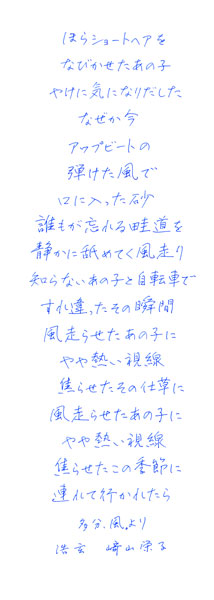 ほらショートヘアを
なびかせたあの子
やけに気になりだした
なぜか今
アップビートの
弾けた風で
口に入った砂
誰もが忘れる畦道を
静かに舐めてく風走り
知らないあの子と自転車で
すれ違ったその瞬間
風走らせたあの子に
やや熱い視線
焦らせたその仕草に
風走らせたあの子に
やや熱い視線
焦らせたこの季節に
連れて行かれたら
多分、風.より